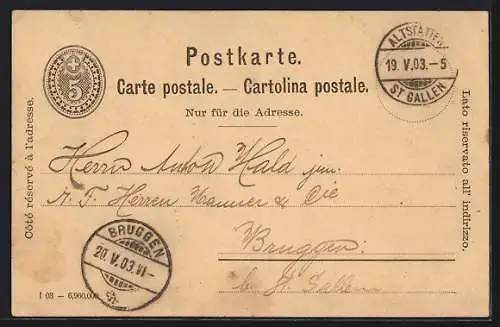 5
Postkarte.
Carte postale. — Cartolina postale.
Nur für die Adresse.
ALTSTÄTTEN
19. V. 03. – 5
ST GALLEN
Côté réservé à l'adresse.
Lato riservato all' indirizzo.
Herrn Anton Wald jun.
A. F. Herren & Cie
Bruggen
b. St. Gallen
BRUGGEN
20. V. 03. VI –
I 03 — 6,960,000